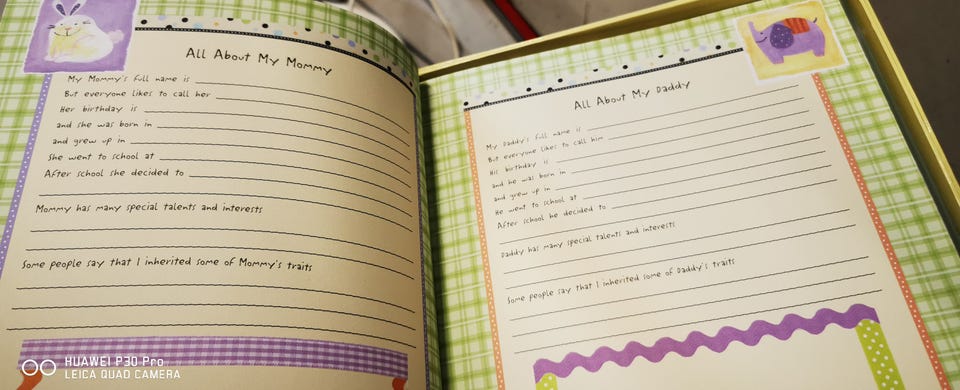 All About My Mommy
My Mommy's full name is
But everyone likes to call her
Her birthday is
and she was born in
and grew up in
She went to school at
After school she decided to
Mommy has many special talents and interests
Some people say that I inherited some of Mommy's traits
All About My Daddy
My Daddy's full name is
But everyone likes to call him
His birthday is
and he was born in
and grew up in
He went to school at
After school he decided to
Daddy has many special talents and interests
Some people say that I inherited some of Daddy's traits
HUAWEI P30 Pro
LEICA QUAD CAMERA